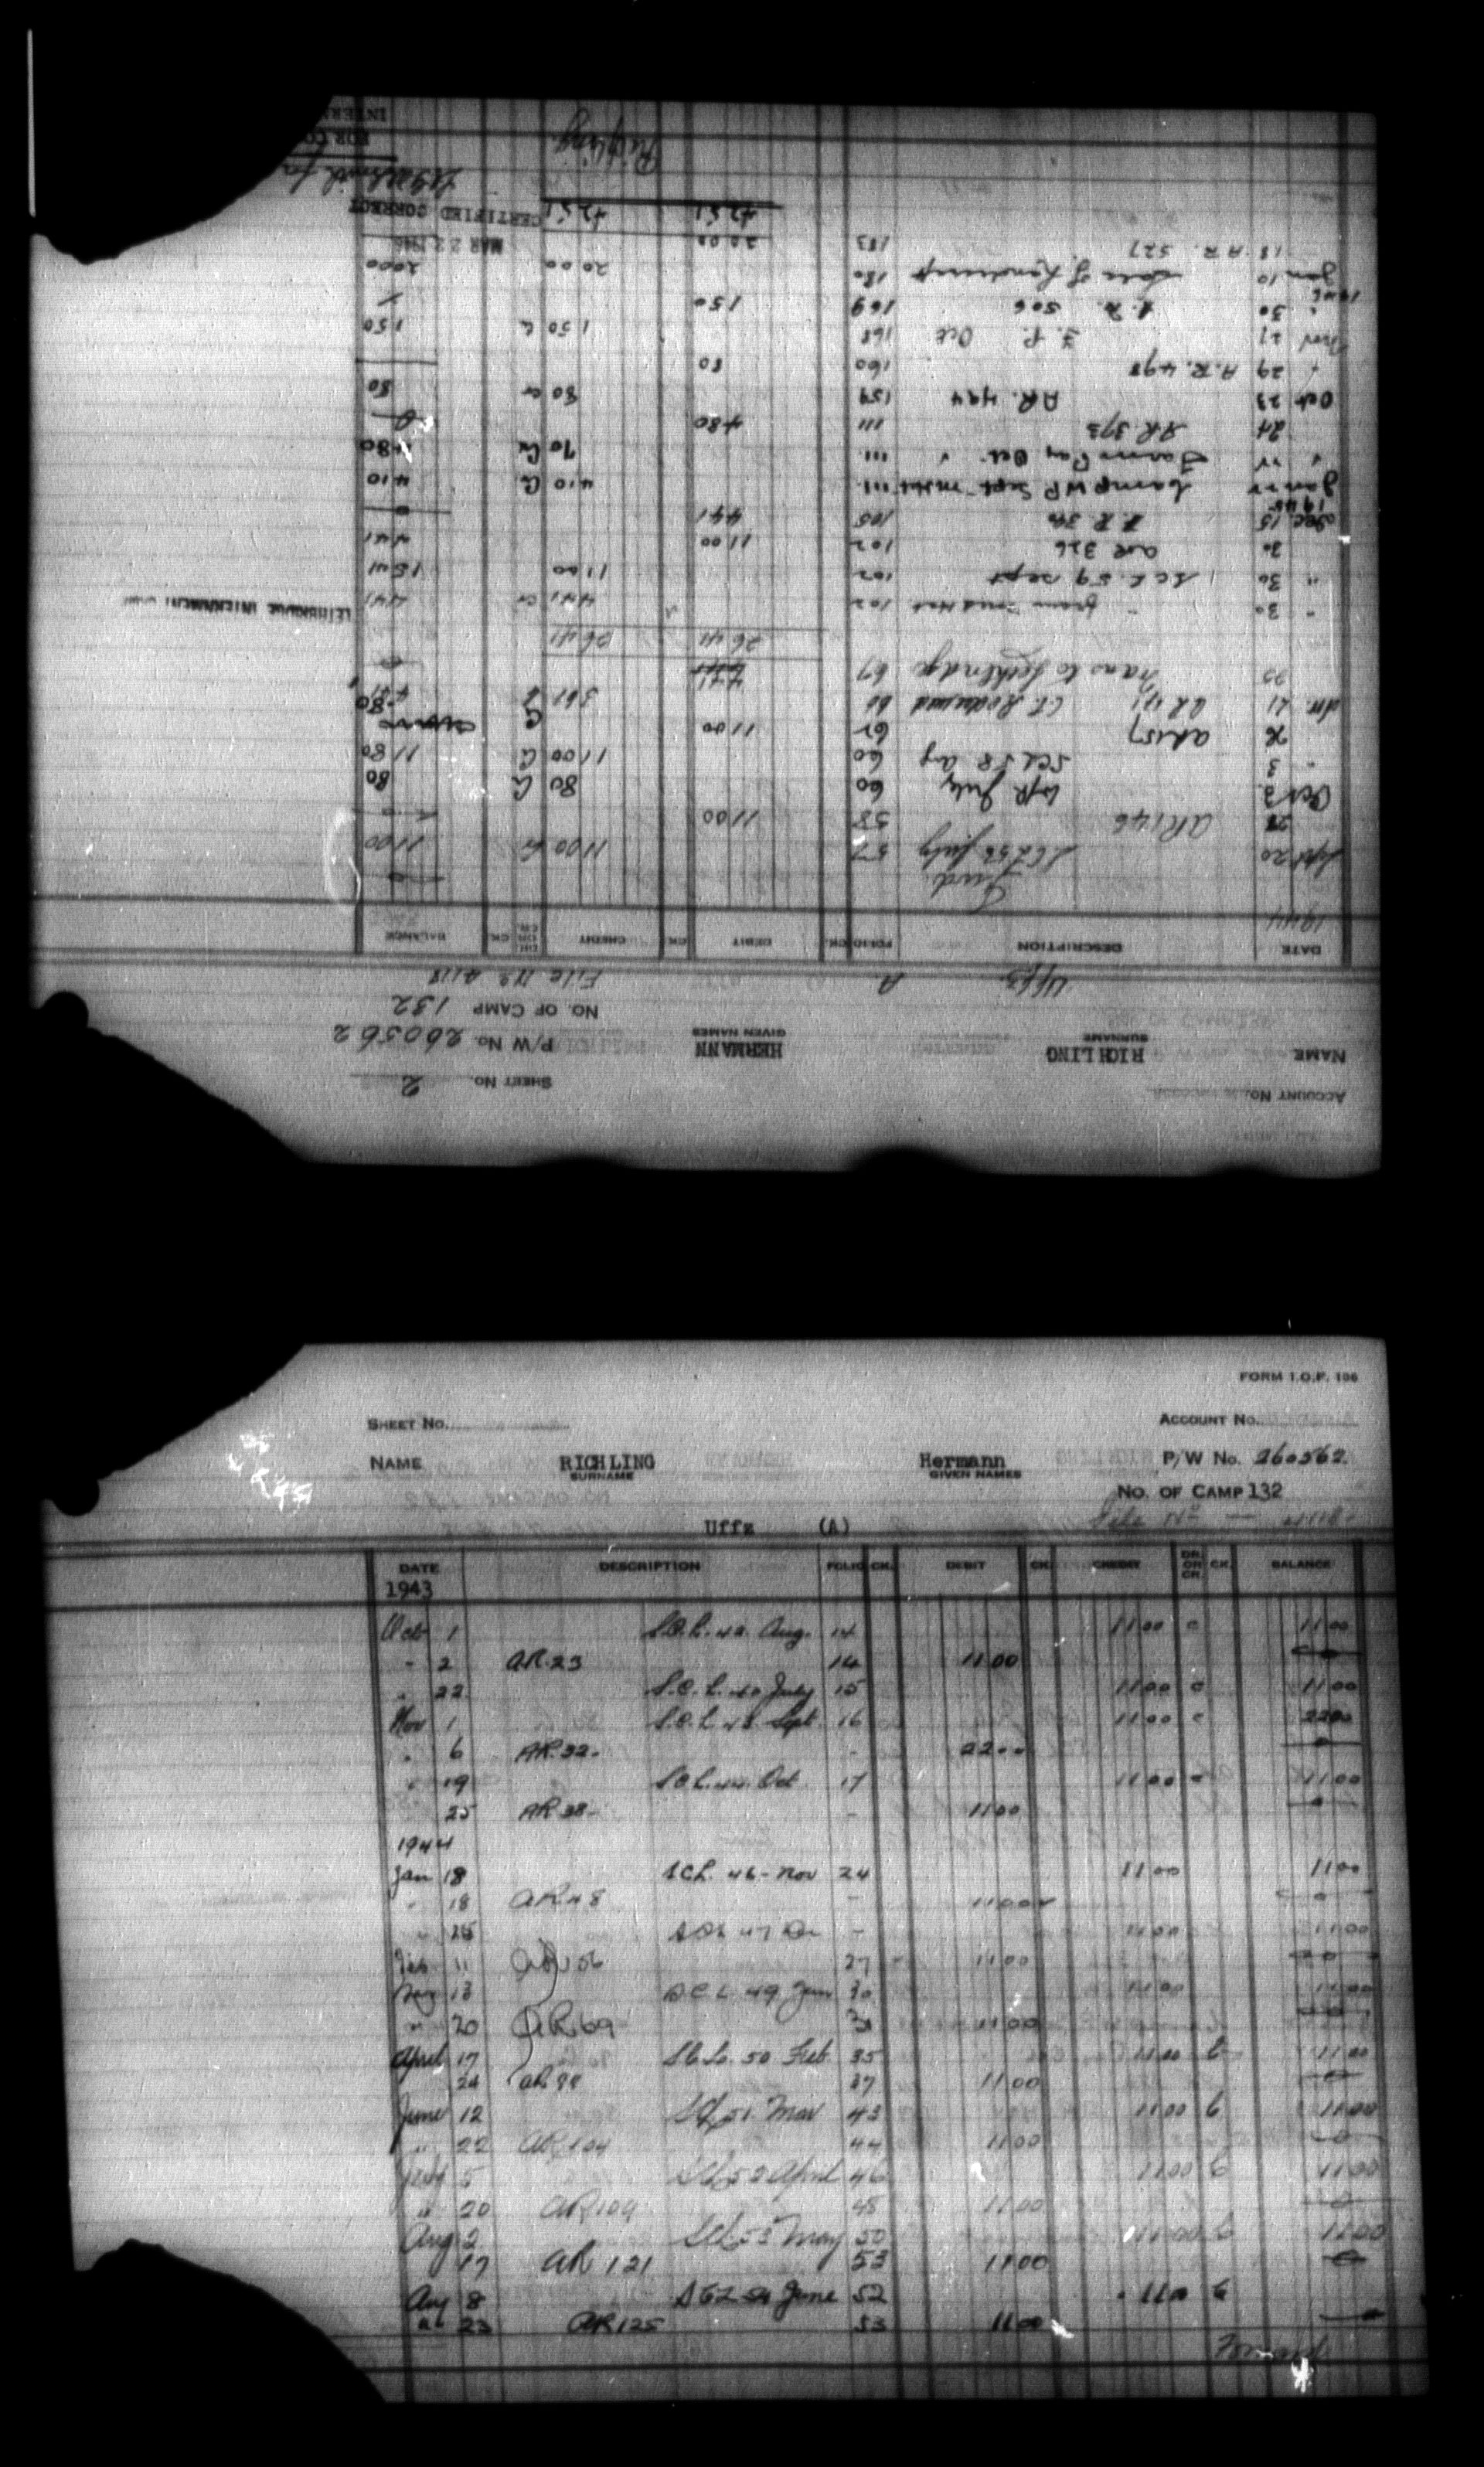 ACCOUNT No.
SHEET No. 2
NAME RICHLING HERMANN P/W No. 260562
SURNAME GIVEN NAMES
NO. OF CAMP 132
Uffz A File No 4118
DATE DESCRIPTION FOLIO CK. DEBIT CK. CREDIT DR. OR CR. CK. BALANCE
1944
Fwd.
Sept 20 SCL 56 July 57 1100 1100
28 AR 146 58 1100
Oct 3 W/P July 60 80 G 80
" 3 SCL 58 Aug 60 1100 G 1180
26 AR157 62 1100
21 AR 171 66 361
Trans to Lethbridge 67 441
2641 2641
" 30 from Med Hat 102 441 Cr 441
" 30 SCL 59 Sept 102 1100 1541
30 AR 326 102 1100 441
Dec 15 105 441
1945
Jan Camp WP Sept 111 410 410
" " Farm Pay Oct 111 70 480
24 AR 373 111 480
Oct 23 AR. 494 159 80 Cr 80
" 29 A.R. 498 160 80
Nov 27 F. P. Oct 168 150 150
" 30 506 169 150
1946
Jan 10 Sale of 180 2000 2000
18 A.R. 527 183 2000
4251 4251
MAR 22 1946
CERTIFIED CORRECT
Richling.
FOR CO
INTERN
LETHBRIDGE INTERNMENT CAMP
FORM I.O.P. 106
SHEET No. ACCOUNT No.
NAME RICHLING Hermann P/W No. 260562
SURNAME GIVEN NAMES
NO. OF CAMP 132
Uffz (A) File No — 4118
DATE DESCRIPTION FOLIO CK. DEBIT CK. CREDIT DR. OR CR. CK. BALANCE
1943
Oct 1 S.C.L. 42 Aug. 14 1100 c 1100
" 2 AR.23 14 1100
" 22 S.C.L. 40 July 15 1100 c 1100
Nov 1 S.C.L. 43 Sept. 16 1100 c 2200
" 6 AR.32- - 2200
" 19 SCL. 44. Oct 17 1100 c 1100
25 AR 38- - 1100
1944
Jan 18 SCL. 46 - Nov 24 1100 1100
" 18 AR48 - 1100
" 25 SCL 47 De - 1100 1100
Feb 11 AR 56 27 1100
Mar 13 S.C.L 49 Jan 30 1100 1100
" 20 AR 69 31 1100
April 17 S.C.L. 50 Feb 35 1100 C 1100
24 AR 88 37 1100
June 12 SCL 51 Mar 43 1100 C 1100
" 22 AR 104 44 1100
July 5 SCL 52 April 46 1100 C 1100
" 20 AR109 48 1100
Aug 2 SCL 53 May 50 1100 C 1100
17 AR 121 53 1100
Aug 8 SCL 54 June 52 1100 C
" 23 AR125 53 1100
Forward